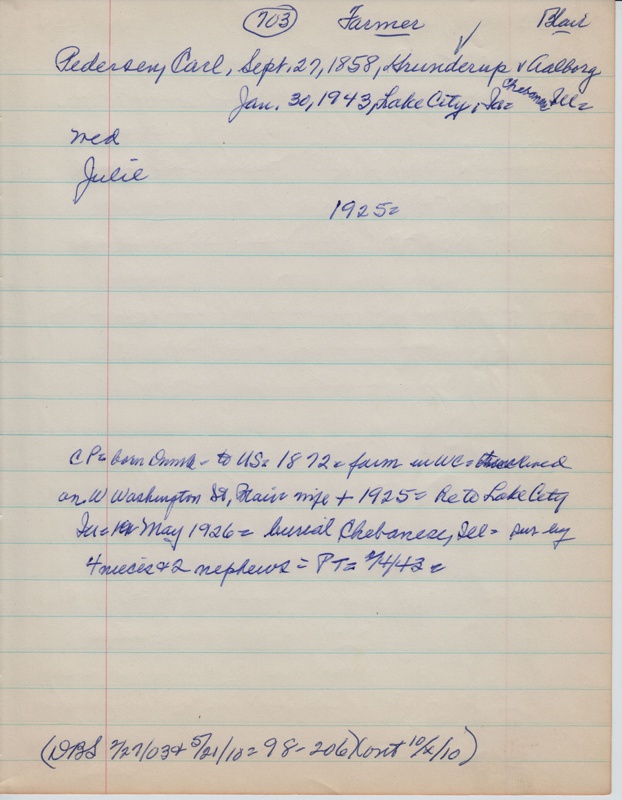 703 Farmer Blair
Pedersen, Carl, Sept. 27, 1858, Hrunderup v Aalborg
Jan. 30, 1943, Lake City, Ia= Chebanse Ill=
wed
Julie
1925=
CP= born Dnmk - to US= 1872= farm in WC= lived
on W Washington St, Blair= wife + 1925= he to Lake City
Ia= May 1926= burial Chebanese, Ill= sur by
4 nieces & 2 nephews = PT= 2/4/43=
(DBS 7/27/03 & 5/21/10= 98-206) (ont 10/X/10)